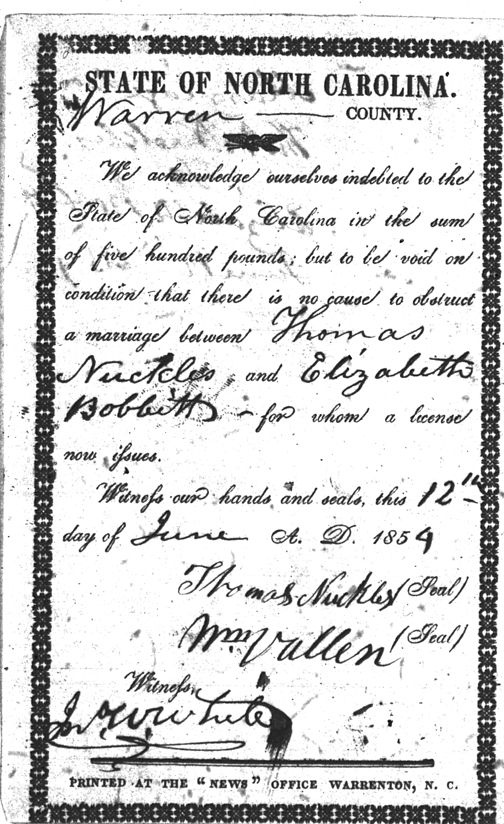 STATE OF NORTH CAROLINA.
Warren COUNTY.
We acknowledge ourselves indebted to the
State of North Carolina in the sum
of five hundred pounds; but to be void on
condition that there is no cause to obstruct
a marriage between Thomas
Nuckles and Elizabeth
Bobbitt - for whom a license
now issues.
Witness our hands and seals, this 12th
day of June A. D. 1854
Thomas Nuckles (Seal)
Wm (Seal)
Witness,
White
PRINTED AT THE "NEWS" OFFICE WARRENTON, N. C.